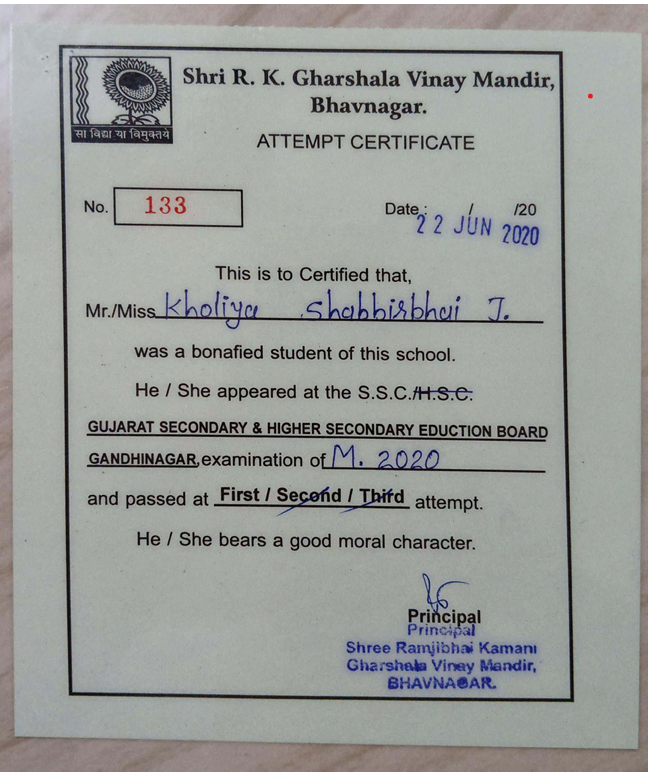 Shri R. K. Gharshala Vinay Mandir,
Bhavnagar.
सा विद्या या विमुक्तये
ATTEMPT CERTIFICATE
No. 133
Date : / /20
22 JUN 2020
This is to Certified that,
Mr./Miss Kholiya Shabbirbhai J.
was a bonafied student of this school.
He / She appeared at the S.S.C./H.S.C.
GUJARAT SECONDARY & HIGHER SECONDARY EDUCTION BOARD
GANDHINAGAR, examination of M. 2020
and passed at First / Second / Third attempt.
He / She bears a good moral character.
Principal
Principal
Shree Ramjibhai Kamani
Gharshala Vinay Mandir,
BHAVNAGAR.